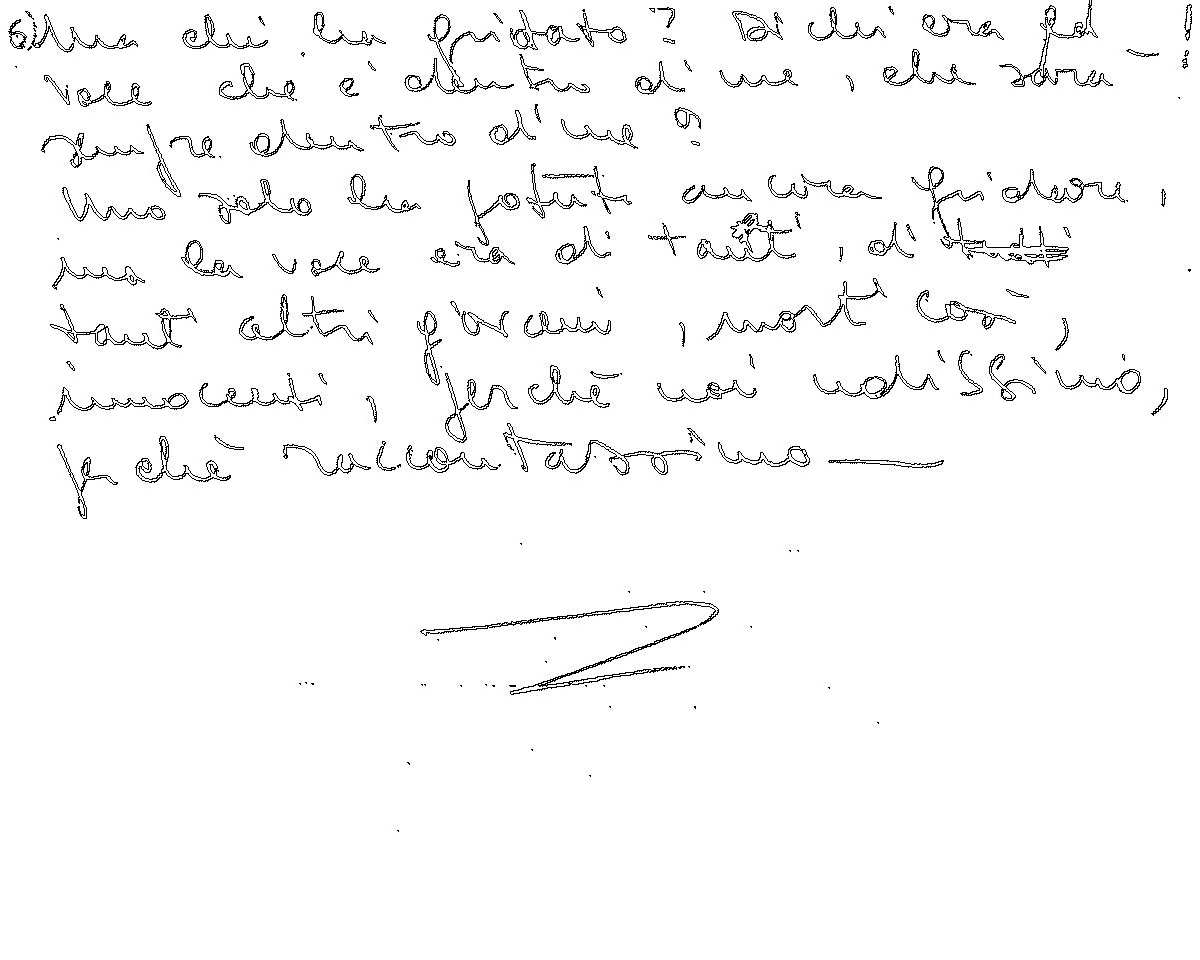 6) Ma chi ha gridato? Di chi era la
voce che è dentro di me, che sarà
sempre dentro di me?
Uno solo ha potuto ancora gridare,
ma la voce era di tanti, di tutti
tanti altri giovani, morti così,
innocenti, perchè noi udissimo,
perchè raccontassimo —